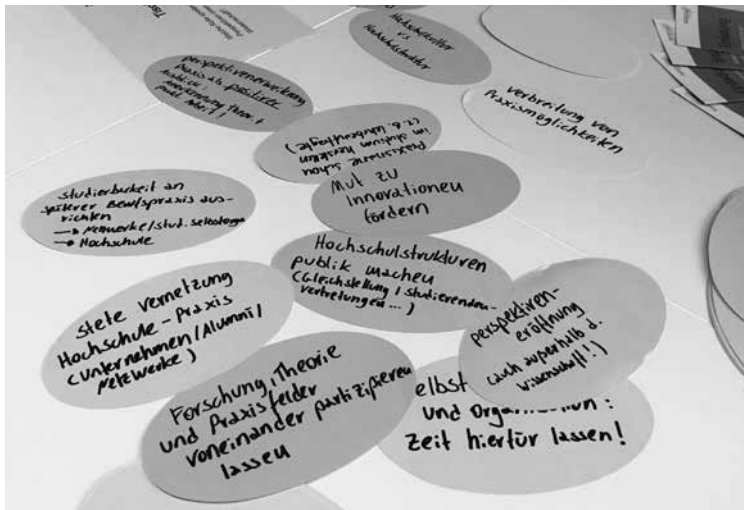 Hochschulkultur
vs
Hochschulstruktur
perspektivenerweiterung
praxis als positiver
Ausblick:
Anerkennung theor. +
prakt. Arbeit!
verbreitung von
Praxismöglichkeiten
Praxisnähe schon
im studium herstellen
(z.B. Lehrbeauftragte)
Mut zu
Innovationen
fördern
studierbarkeit an
späterer Berufspraxis aus-
richten
→ Netzwerke/stud.
→ Hochschule
Hochschulstrukturen
publik machen
(Gleichstellung / Studierenden-
vertretungen ...)
stete vernetzung
Hochschule - Praxis
(Unternehmen/Alumni/
Netzwerke)
perspektiven-
eröffnung
(auch außerhalb d.
Wissenschaft!)
Forschung, Theorie
und Praxisfelder
voneinander partizipieren
lassen
elbst
und Organisation:
Zeit hierfür lassen!